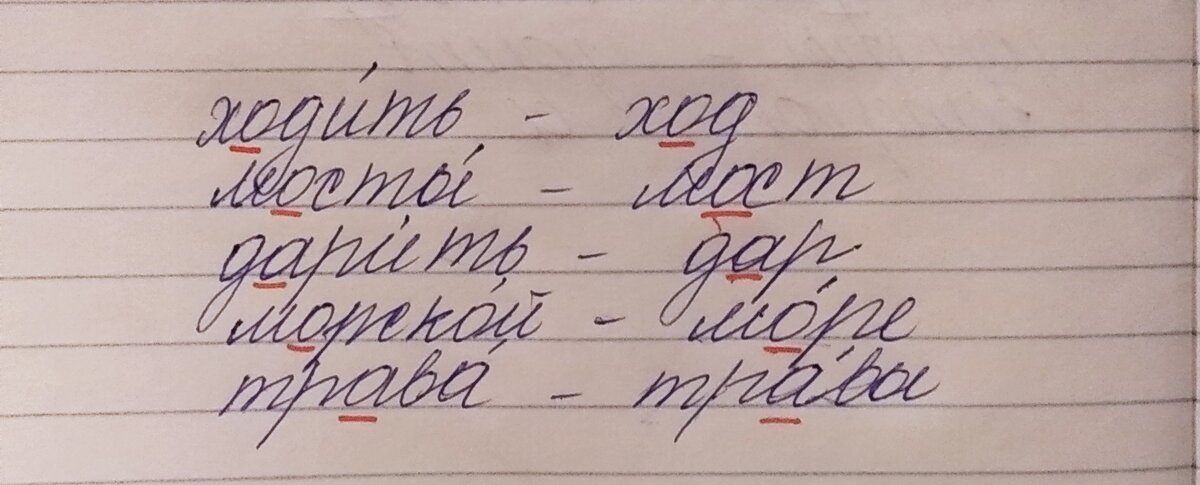 ходи́ть - ход
мосты́ - мост
дари́ть - дар
морско́й - мо́ре
трава́ - тра́вы